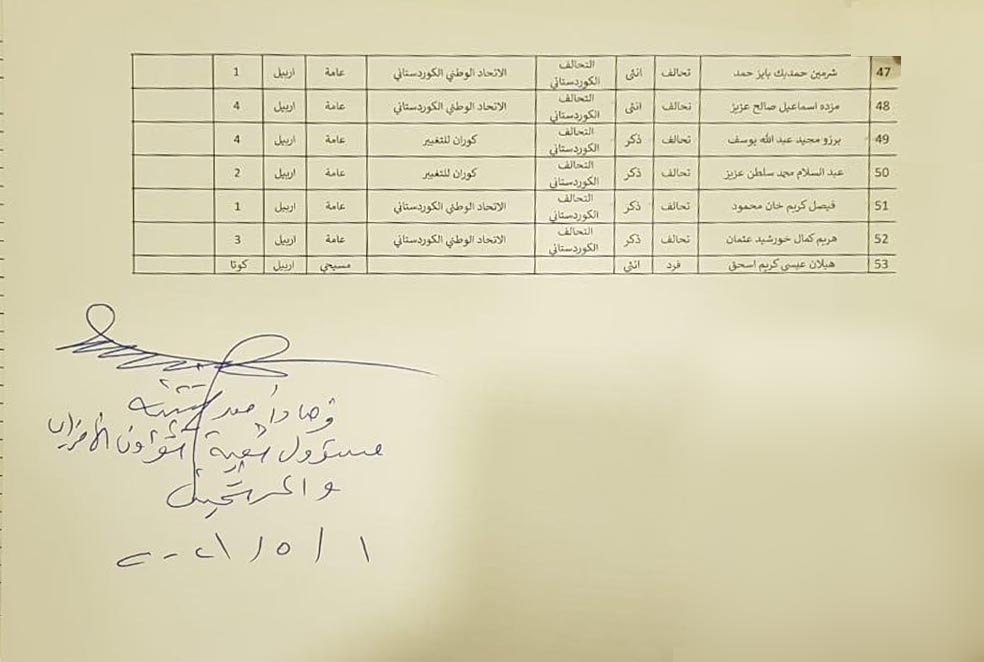 47 شرمين حمدبك بايز حمد تحالف انثى التحالف الكوردستاني الاتحاد الوطني الكوردستاني عامة اربيل 1
48 مزده اسماعيل صالح عزيز تحالف انثى التحالف الكوردستاني الاتحاد الوطني الكوردستاني عامة اربيل 4
49 برزو مجيد عبد الله يوسف تحالف ذكر التحالف الكوردستاني كوران للتغيير عامة اربيل 4
50 عبد السلام محمد سلطن عزيز تحالف ذكر التحالف الكوردستاني كوران للتغيير عامة اربيل 2
51 فيصل كريم خان محمود تحالف ذكر التحالف الكوردستاني الاتحاد الوطني الكوردستاني عامة اربيل 1
52 هريم كمال خورشيد عثمان تحالف ذكر التحالف الكوردستاني الاتحاد الوطني الكوردستاني عامة اربيل 3
53 هيلان عيسى كريم اسحق فرد انثى مسيحي اربيل كوتا
مسؤول شعبة شؤون الاحزاب
والمرشحين